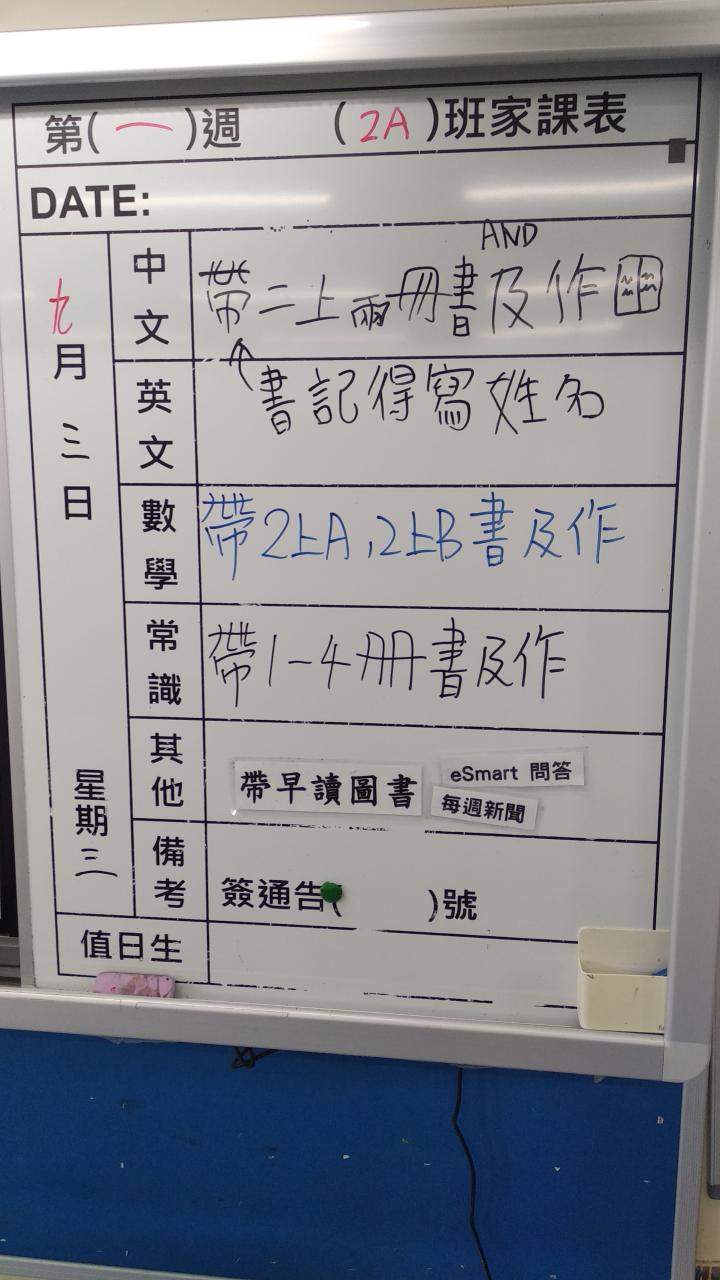 第(一)週 (2A)班家課表
DATE:
九月三日
星期三
中文
AND
帶二上兩冊書及作
英文
書記得寫姓名
數學
帶2上A,2上B書及作
常識
帶1-4冊書及作
其他
帶早讀圖書 eSmart 問答
每週新聞
備考
簽通告( )號
值日生